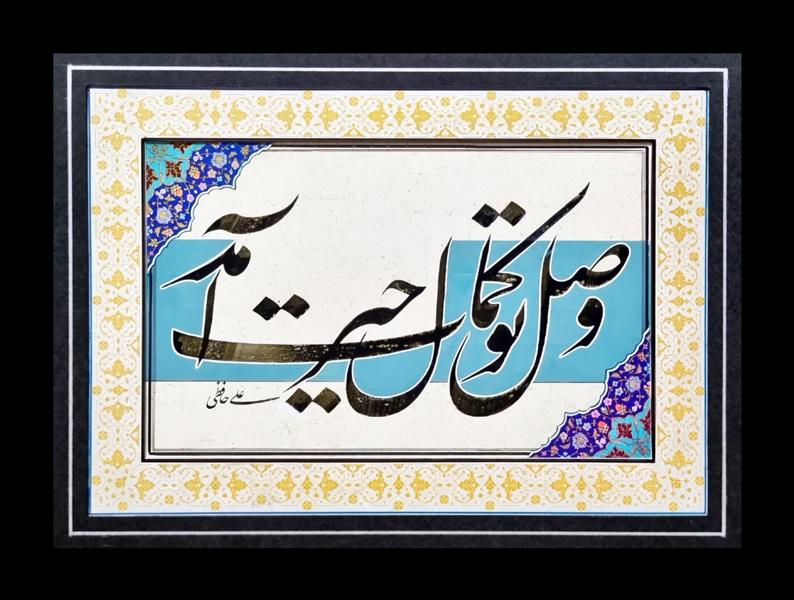 وصل تو کمال حیرت آمد
علی حافظی